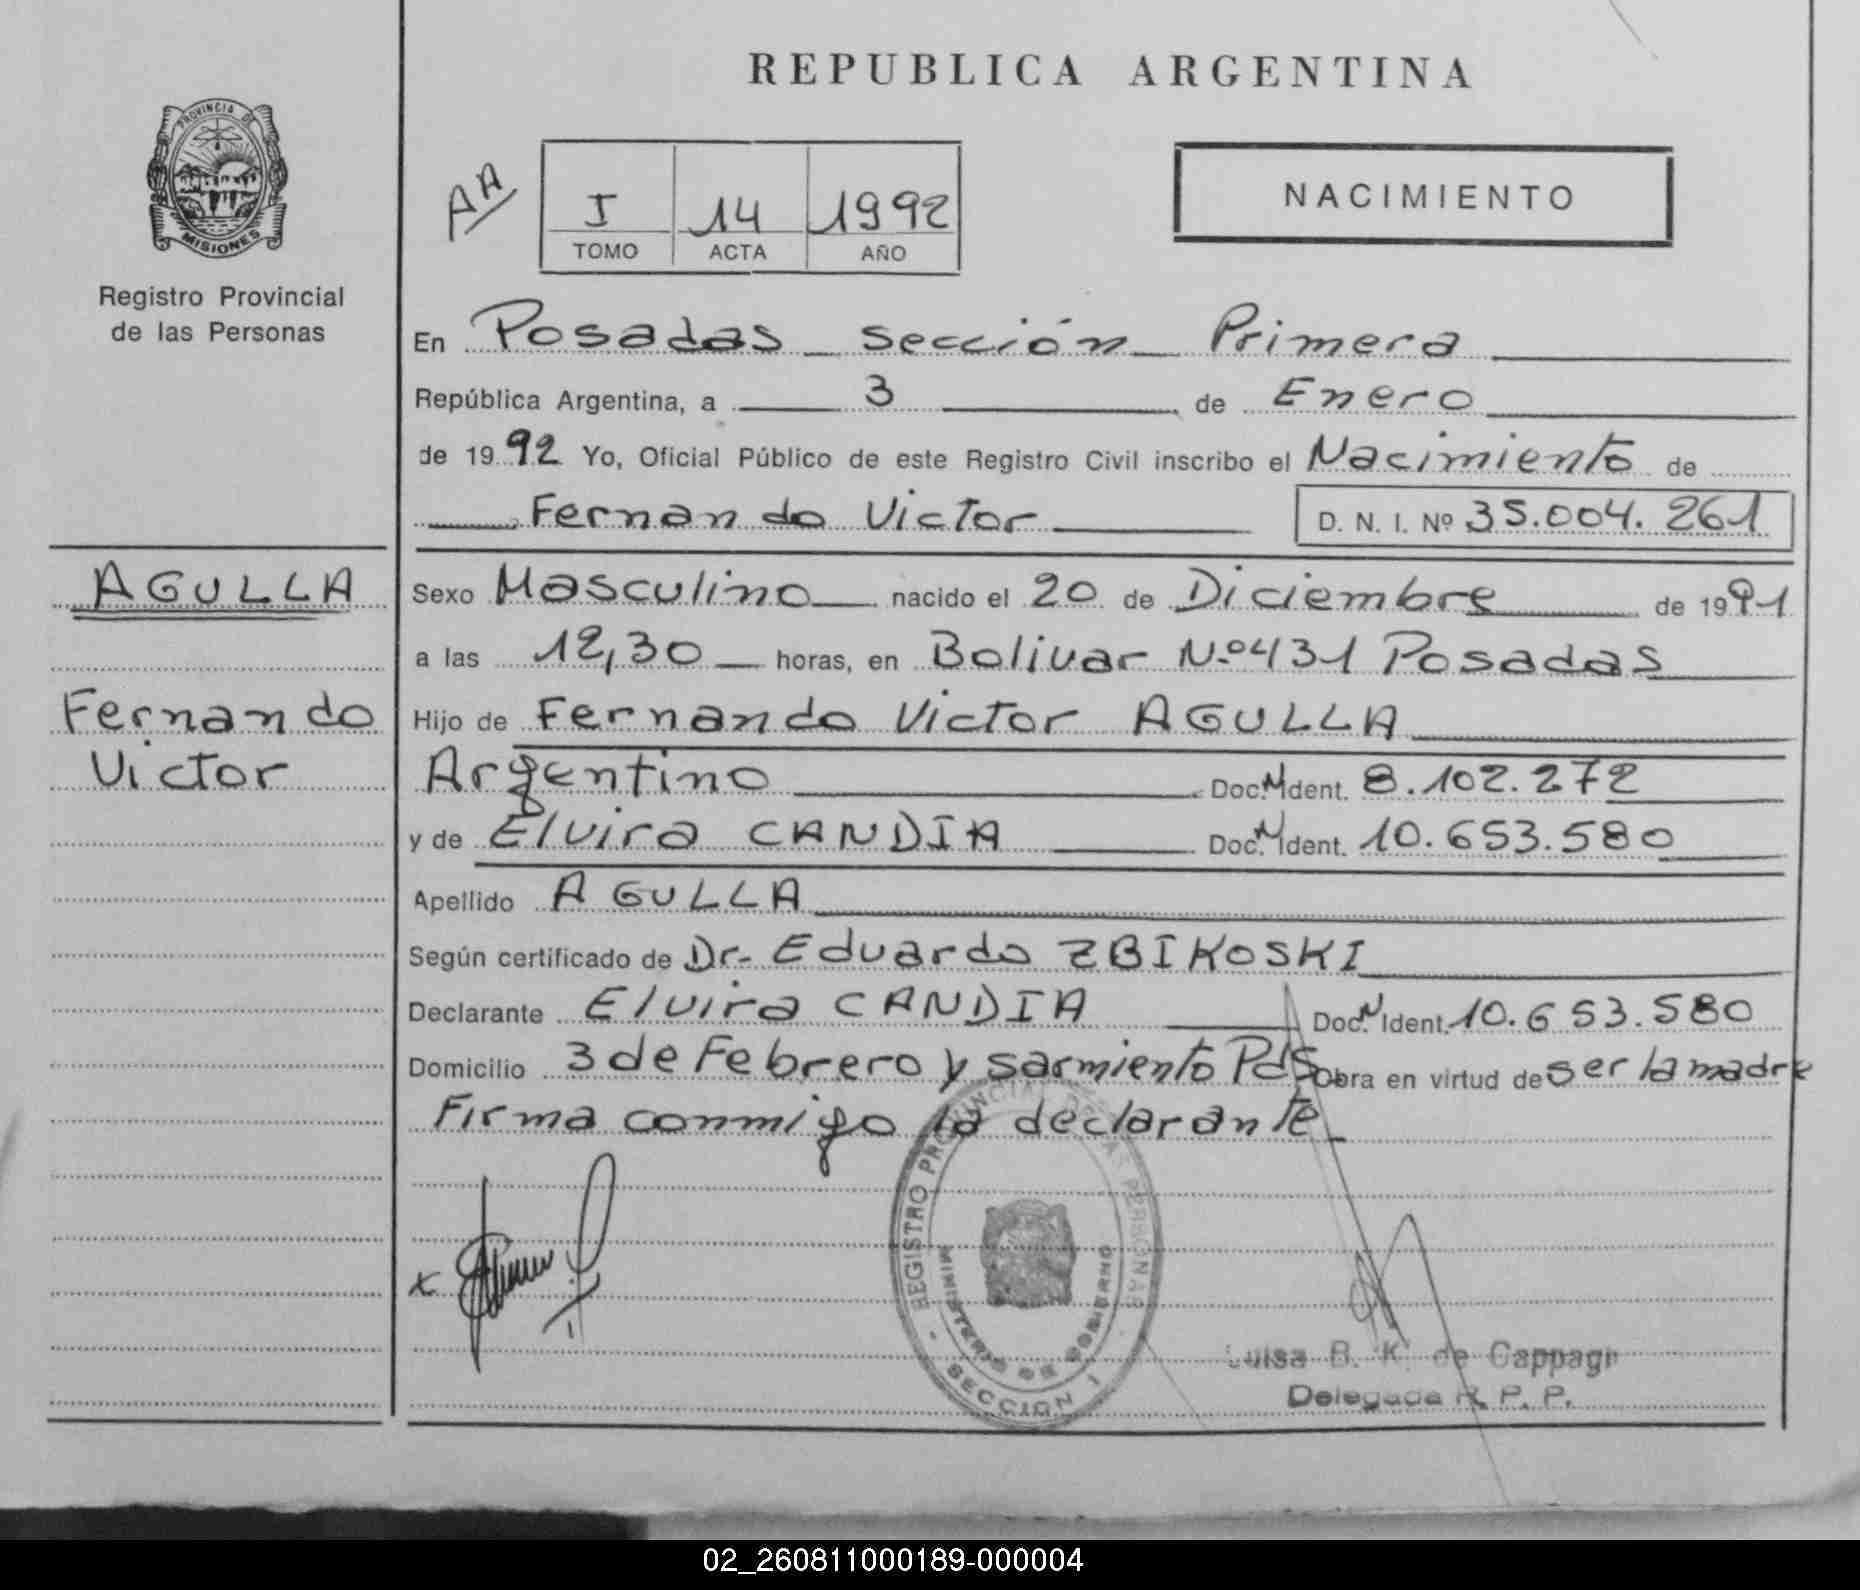 REPUBLICA ARGENTINA
PROVINCIA DE
MISIONES
Registro Provincial
de las Personas
AA
I 14 1992
TOMO ACTA AÑO
NACIMIENTO
En Posadas sección Primera
República Argentina, a 3 de Enero
de 1992 Yo, Oficial Público de este Registro Civil inscribo el Nacimiento de
Fernando Victor D. N. I. Nº 35.004.261
AGULLA
Fernando
Victor
Sexo Masculino nacido el 20 de Diciembre de 1991
a las 12,30 horas, en Bolivar Nº 431 Posadas
Hijo de Fernando Victor AGULLA
Argentino Doc. N Ident. 8.102.272
y de Elvira CANDIA Doc. N Ident. 10.653.580
Apellido AGULLA
Según certificado de Dr. Eduardo ZBIKOSKI
Declarante Elvira CANDIA Doc. N Ident. 10.653.580
Domicilio 3 de Febrero y sarmiento Pds Obra en virtud de ser la madre
Firma conmigo la declarante
REGISTRO PROVINCIAL DE LAS PERSONAS
MINISTERIO DE GOBIERNO
SECCION 1
x
Luisa B. K. de Cappagi
Delegada R. P. P.
02_260811000189-000004